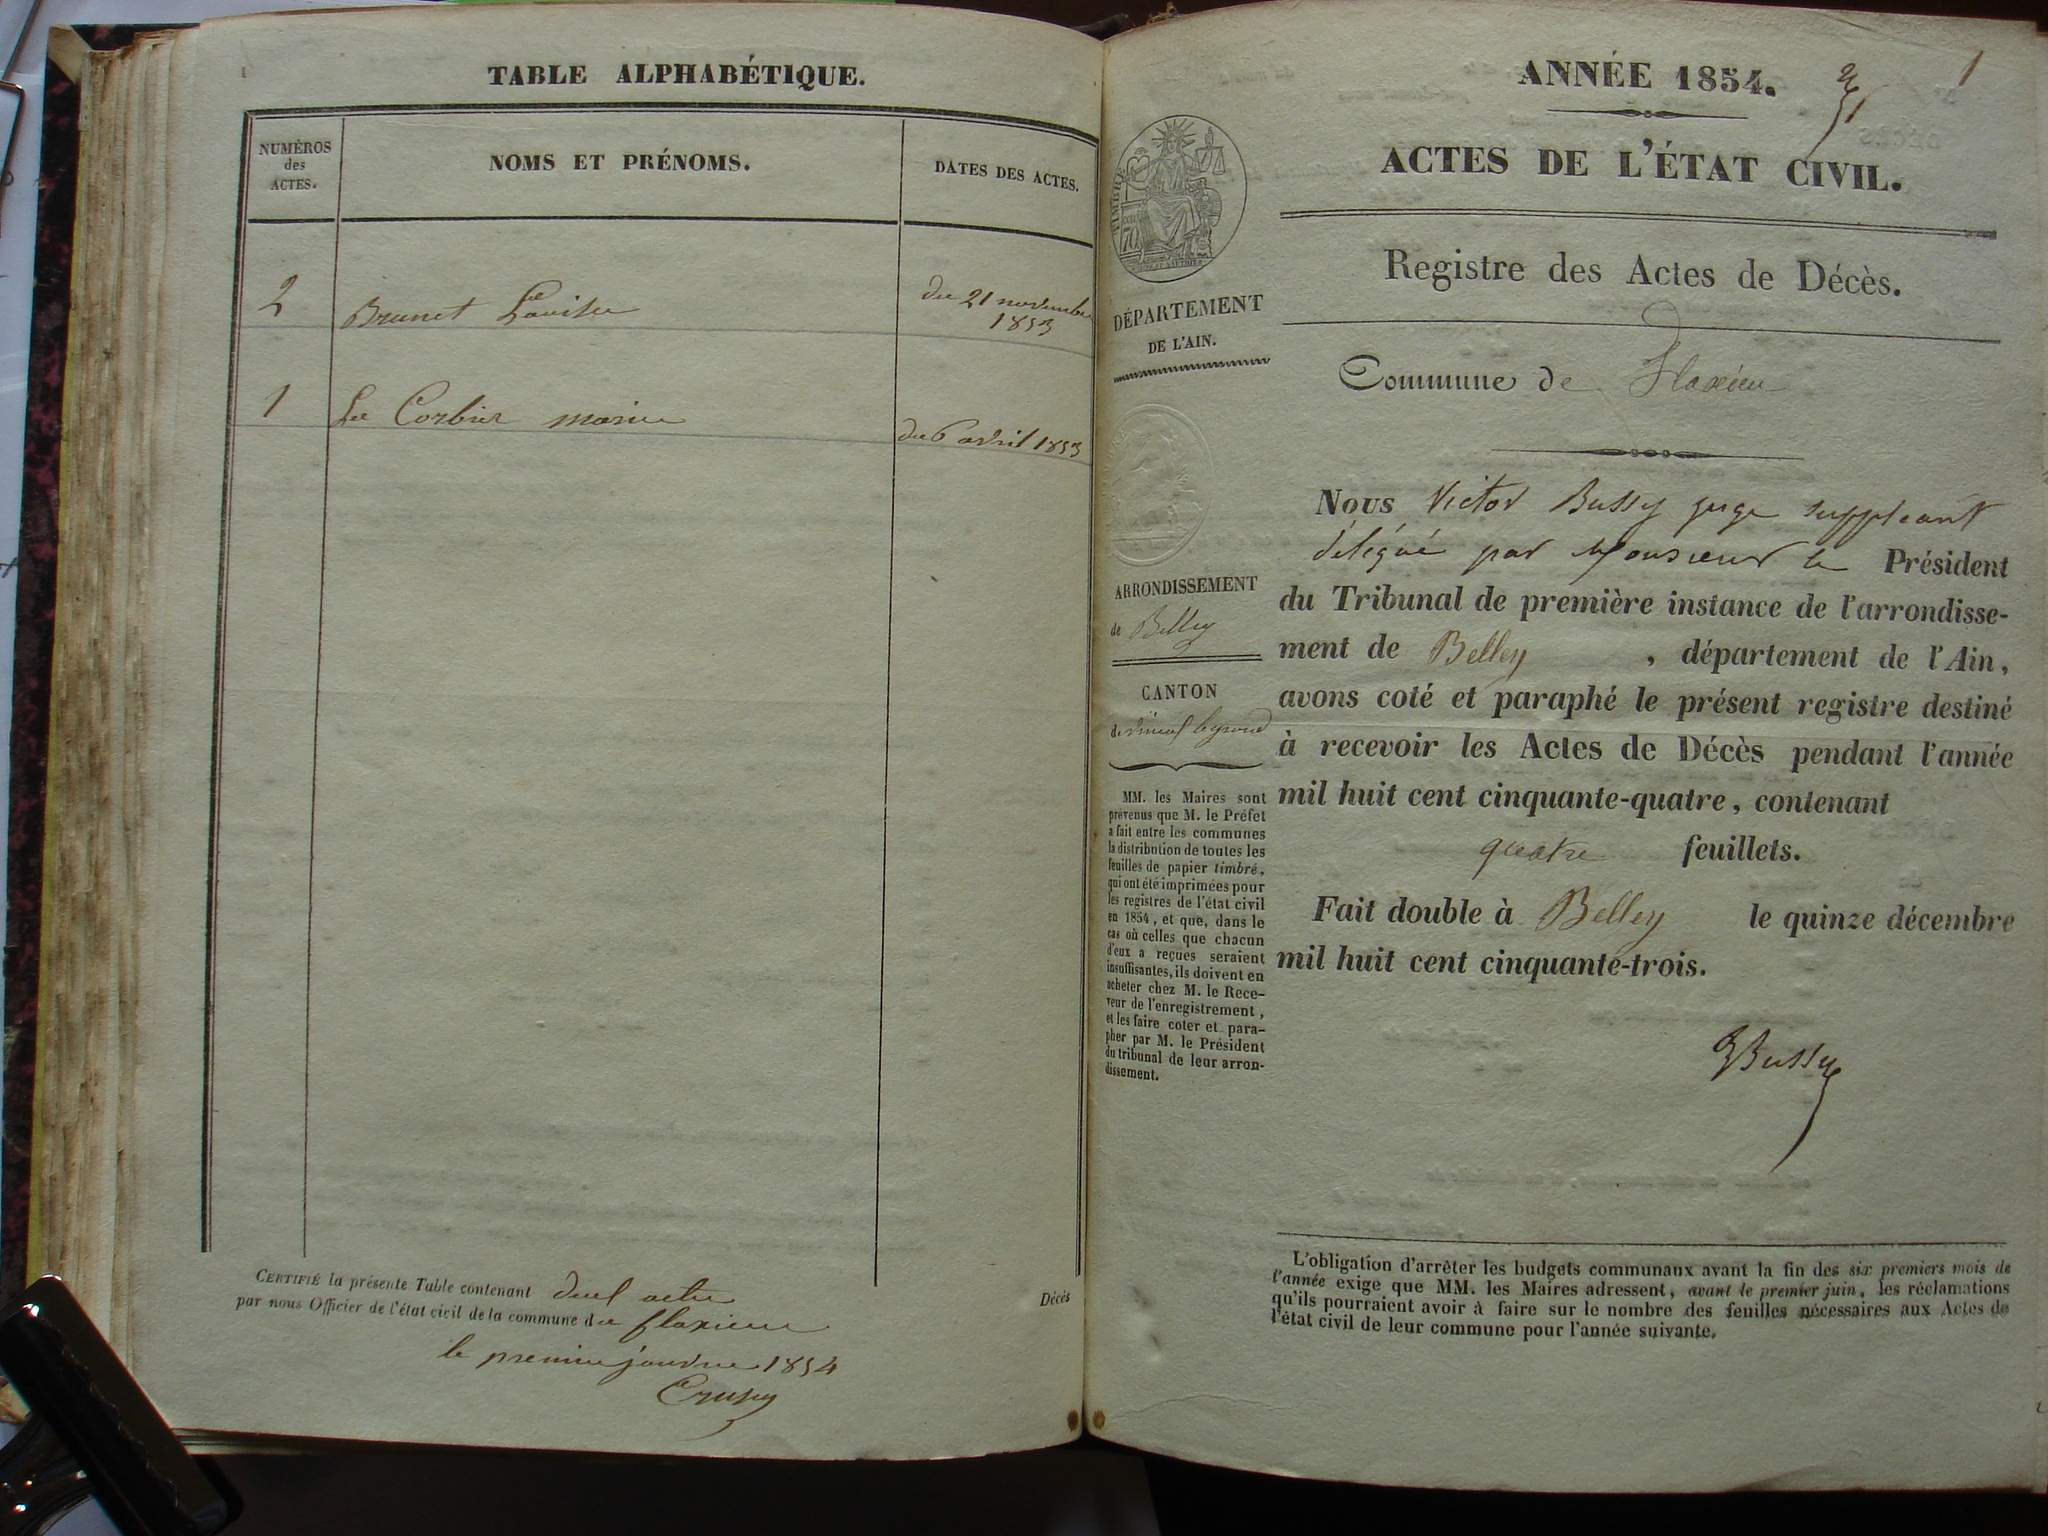 TABLE ALPHABÉTIQUE.
NUMÉROS
des
ACTES.
NOMS ET PRÉNOMS.
DATES DES ACTES.
2
Brunet Louise
du 21 novembre
1853
1
Le Corbier marie
du 6 avril 1853
CERTIFIÉ la présente Table contenant deux acte
par nous Officier de l'état civil de la commune de flaxieu
le premier janvier 1854
Décès
1
ANNÉE 1854.
ACTES DE L'ÉTAT CIVIL.
Registre des Actes de Décès.
Commune de Flaxieu
TIMBRE
70
DÉPARTEMENT
DE L'AIN.
ARRONDISSEMENT
de Belley
CANTON
de Virieu le grand
MM. les Maires sont
prévenus que M. le Préfet
a fait entre les communes
la distribution de toutes les
feuilles de papier timbré,
qui ont été imprimées pour
les registres de l'état civil
en 1854, et que, dans le
cas où celles que chacun
d'eux a reçues seraient
insuffisantes, ils doivent en
acheter chez M. le Rece-
veur de l'enregistrement,
et les faire coter et para-
pher par M. le Président
du tribunal de leur arron-
dissement.
Nous Victor Bussy juge suppléant
délégué par Monsieur le Président
du Tribunal de première instance de l'arrondisse-
ment de Belley , département de l'Ain,
avons coté et paraphé le présent registre destiné
à recevoir les Actes de Décès pendant l'année
mil huit cent cinquante-quatre, contenant
quatre feuillets.
Fait double à Belley le quinze décembre
mil huit cent cinquante-trois.
VBussy
L'obligation d'arrêter les budgets communaux avant la fin des six premiers mois de
l'année exige que MM. les Maires adressent, avant le premier juin, les réclamations
qu'ils pourraient avoir à faire sur le nombre des feuilles nécessaires aux Actes de
l'état civil de leur commune pour l'année suivante.